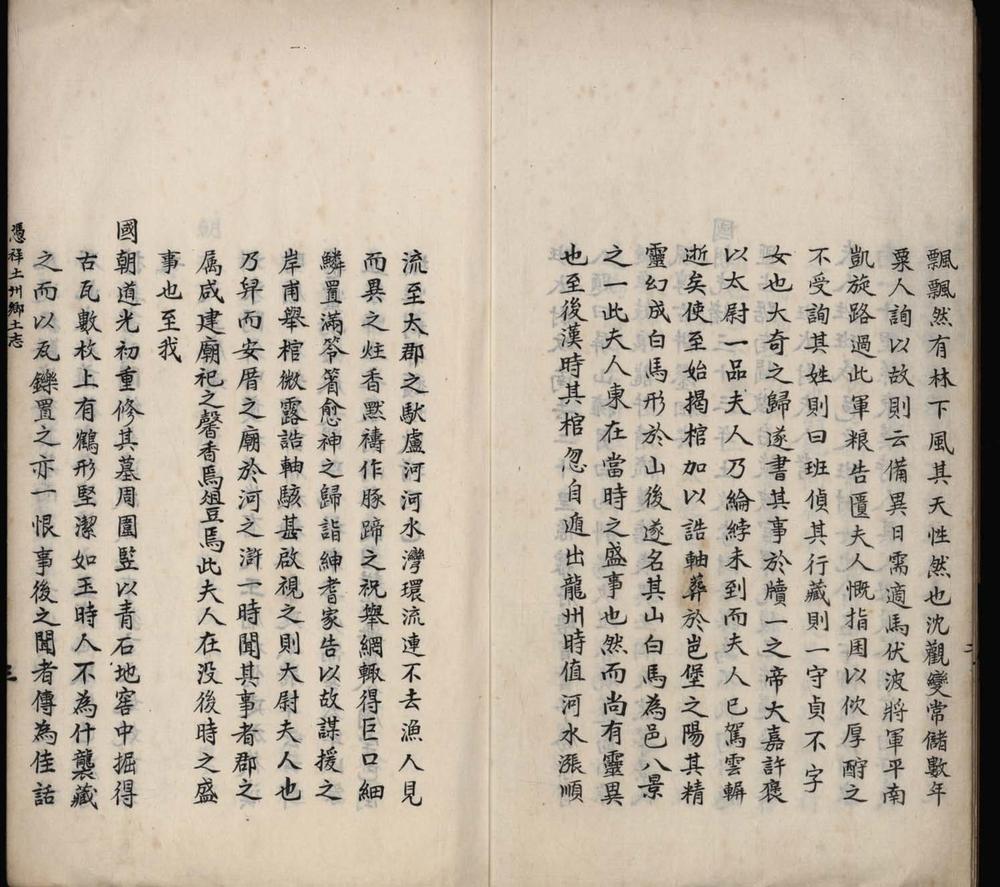 飄飄然有林下風其天性然也沈觀變常儲數年
粟人詢以故則云備異日需適馬伏波將軍平南
凱旋路過此軍粮告匱夫人慨指囷以佽厚酧之
不受詢其姓則曰班偵其行藏則一守貞不字
女也大奇之歸遂書其事於牘一之帝大嘉許褒
以太尉一品夫人乃綸綍未到而夫人已駕雲輧
逝矣使至始揭棺加以誥軸葬於邕堡之陽其精
靈幻成白馬形於山後遂名其山白馬為邑八景
之一此夫人東在當時之盛事也然而尚有靈異
也至後漢時其棺忽自遁出龍州時值河水漲順
流至太郡之馱盧河河水灣環流連不去漁人見
而異之炷香黙禱作豚蹄之祝舉網輙得巨口細
鱗置滿笭箵愈神之歸詣紳耆家告以故謀援之
岸甫舉棺微露誥軸駭甚啟視之則大尉夫人也
乃舁而安厝之廟於河之滸一時聞其事者郡之
属咸建廟祀之馨香焉俎豆焉此夫人在没後時之盛
事也至我
國朝道光初重修其墓周圍竪以青石地窖中掘得
古瓦數枚上有鶴形堅潔如玉時人不為什襲藏
之而以瓦鑠置之亦一恨事後之聞者傳為佳話
憑祥土州鄉土志